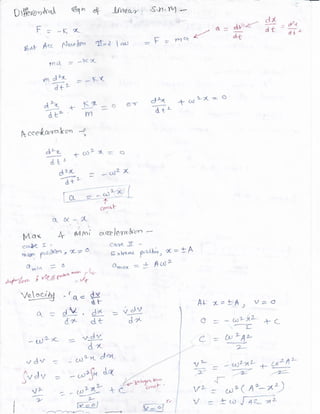 Differential Eqn of Linear S.H.M —
F = -K x
But Acc Newton IInd law = F = ma
a = dv/dt
dx/dt = d²x/dt²
ma = -Kx
m d²x/dt² = -Kx
d²x/dt² + K x/m = 0 or d²x/dt² + ω²x = 0
Acceleration →
d²x/dt² + ω²x = 0
d²x/dt² = -ω²x
a = -ω²x
const
a ∝ -x
Max & Mini acceleration —
case I -
mean position, x = 0
amin = 0
Case II -
Extreme position, x = ±A
amax = ± Aω²
Velocity - a = dv/dt
a = dv/dx . dx/dt = v dv/dx
-ω²x = vdv/dx
vdv = -ω²x dx
∫vdv = -ω²∫x dx
v²/2 = -ω²x²/2 + C
const.
At x = ±A, v = 0
0 = -ω²A²/2 + C
C = ω²A²/2
v²/2 = -ω²x²/2 + ω²A²/2
V² = ω²(A²-x²)
V = ± ω √A²-x²